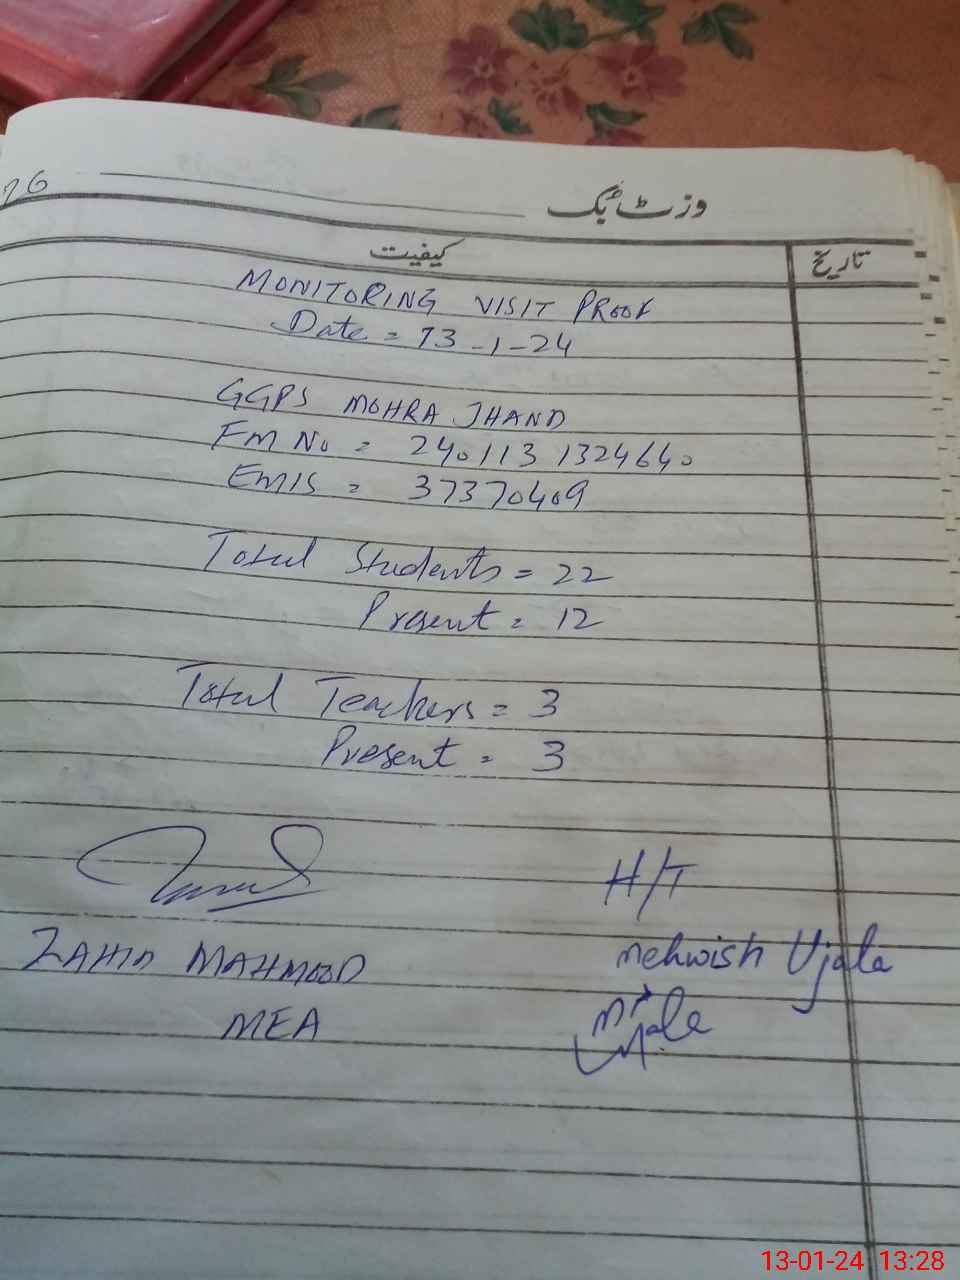 76
وزٹ بک
کیفیت
تاریخ
MONITORING VISIT PROOF
Date = 13-1-24
GGPS MOHRA JHAND
FM No = 2401131324640
EMIS = 37370409
Total Students = 22
Present = 12
Total Teachers = 3
Present = 3
H/T
ZAHID MAHMOOD
Mehwish Ujala
MEA
13-01-24 13:28